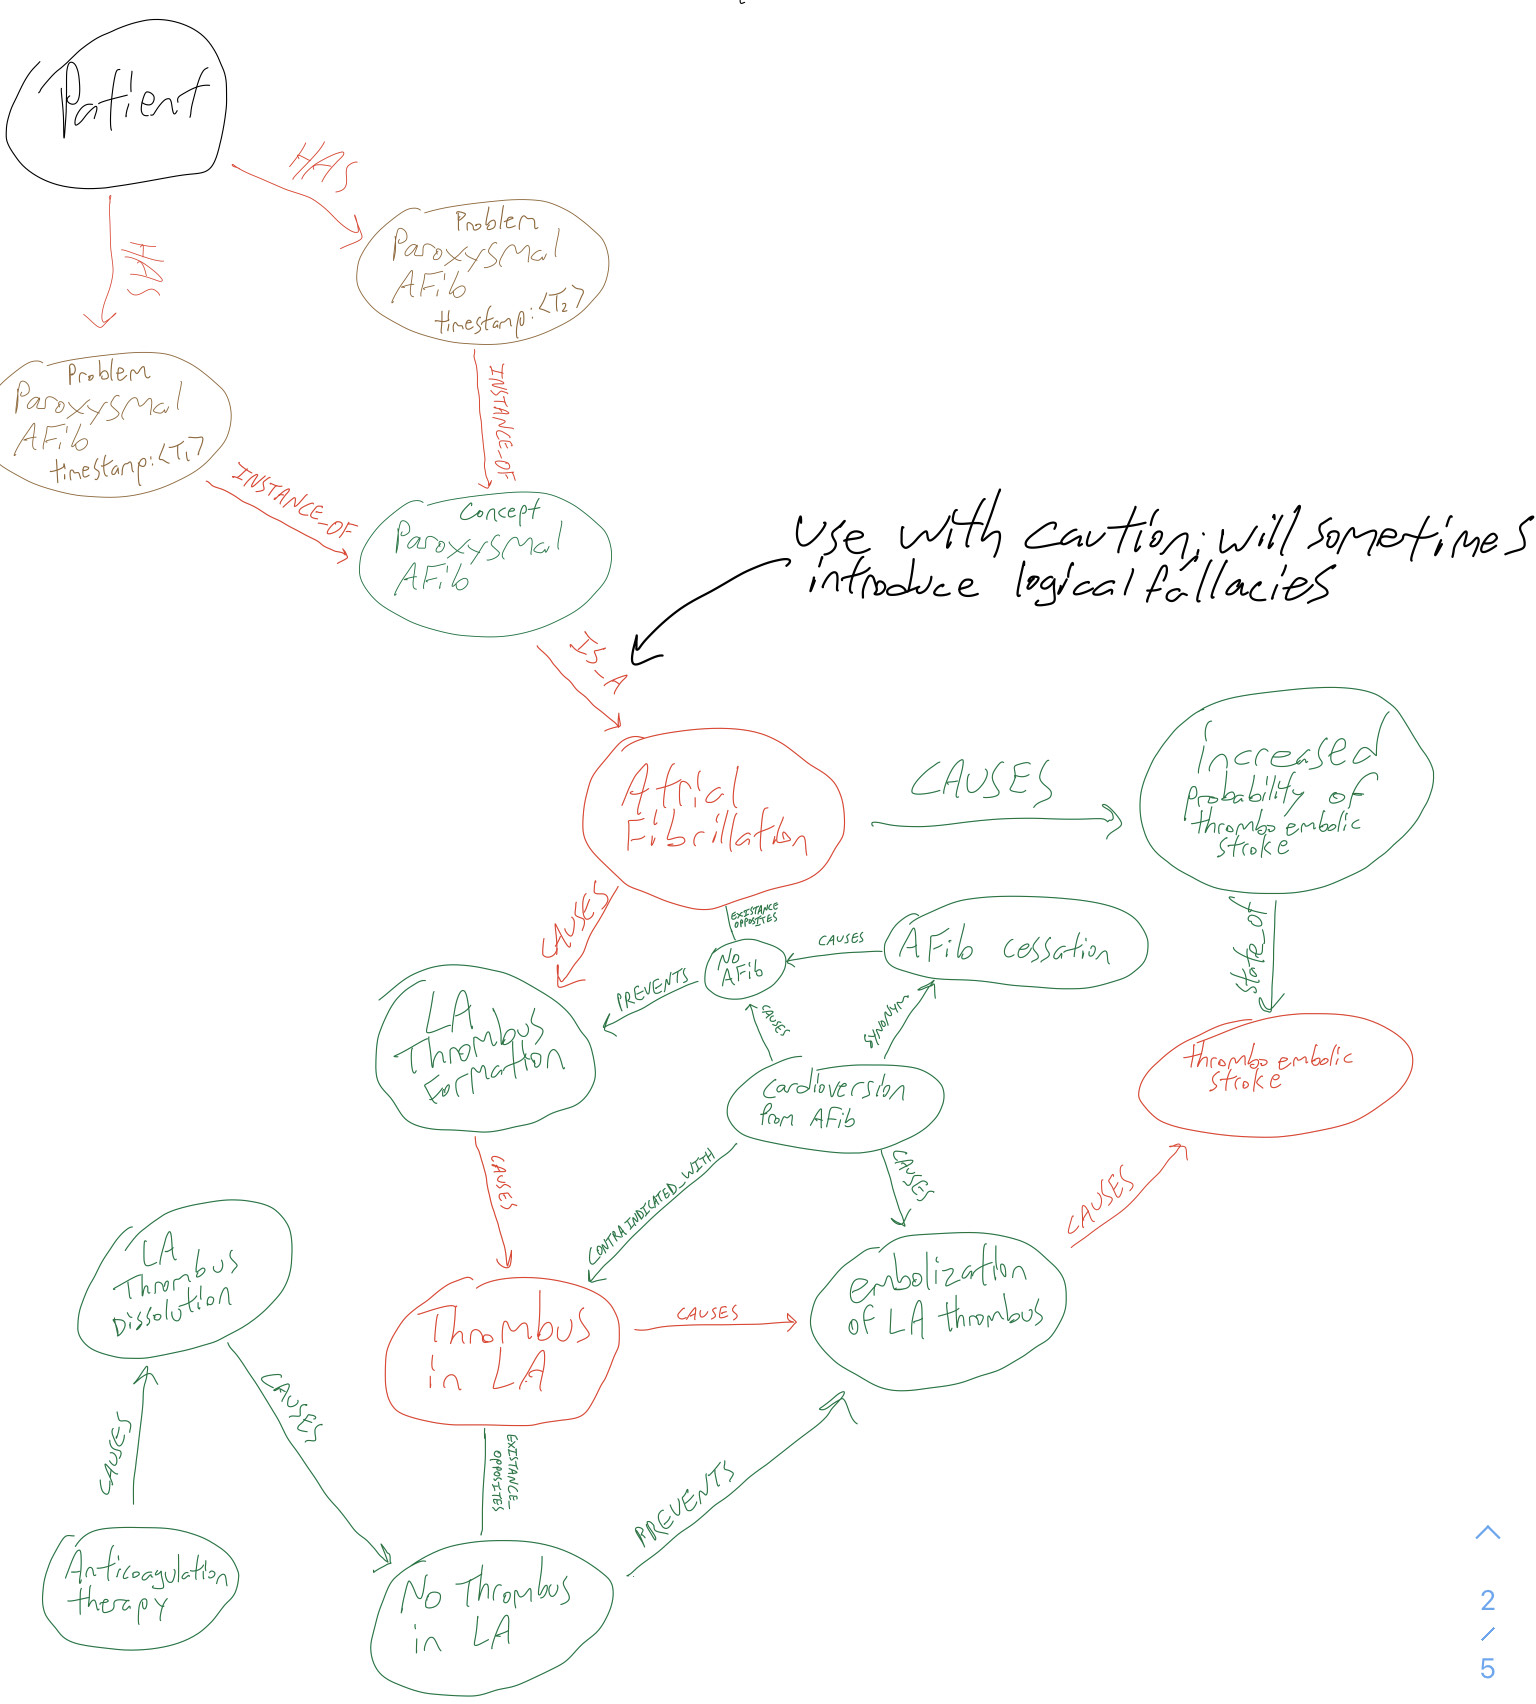 Patient
HAS
HAS
Problem
Paroxysmal
AFib
timestamp:<T2>
Problem
Paroxysmal
AFib
timestamp:<T1>
INSTANCE_OF
INSTANCE_OF
Concept
Paroxysmal
AFib
use with caution; will sometimes
introduce logical fallacies
IS_A
Atrial
Fibrillation
CAUSES
increased
probability of
thrombo embolic
stroke
CAUSES
EXISTANCE
OPPOSITES
No
AFib
CAUSES
AFib cessation
State_of
PREVENTS
CAUSES
SYNONYM
LA
Thrombus
Formation
Cardioversion
from AFib
thrombo embolic
stroke
CAUSES
CONTRAINDICATED_WITH
CAUSES
CAUSES
LA
Thrombus
Dissolution
Thrombus
in LA
CAUSES
embolization
of LA thrombus
CAUSES
CAUSES
EXISTANCE_
OPPOSITES
PREVENTS
Anticoagulation
therapy
No Thrombus
in LA
2
/
5